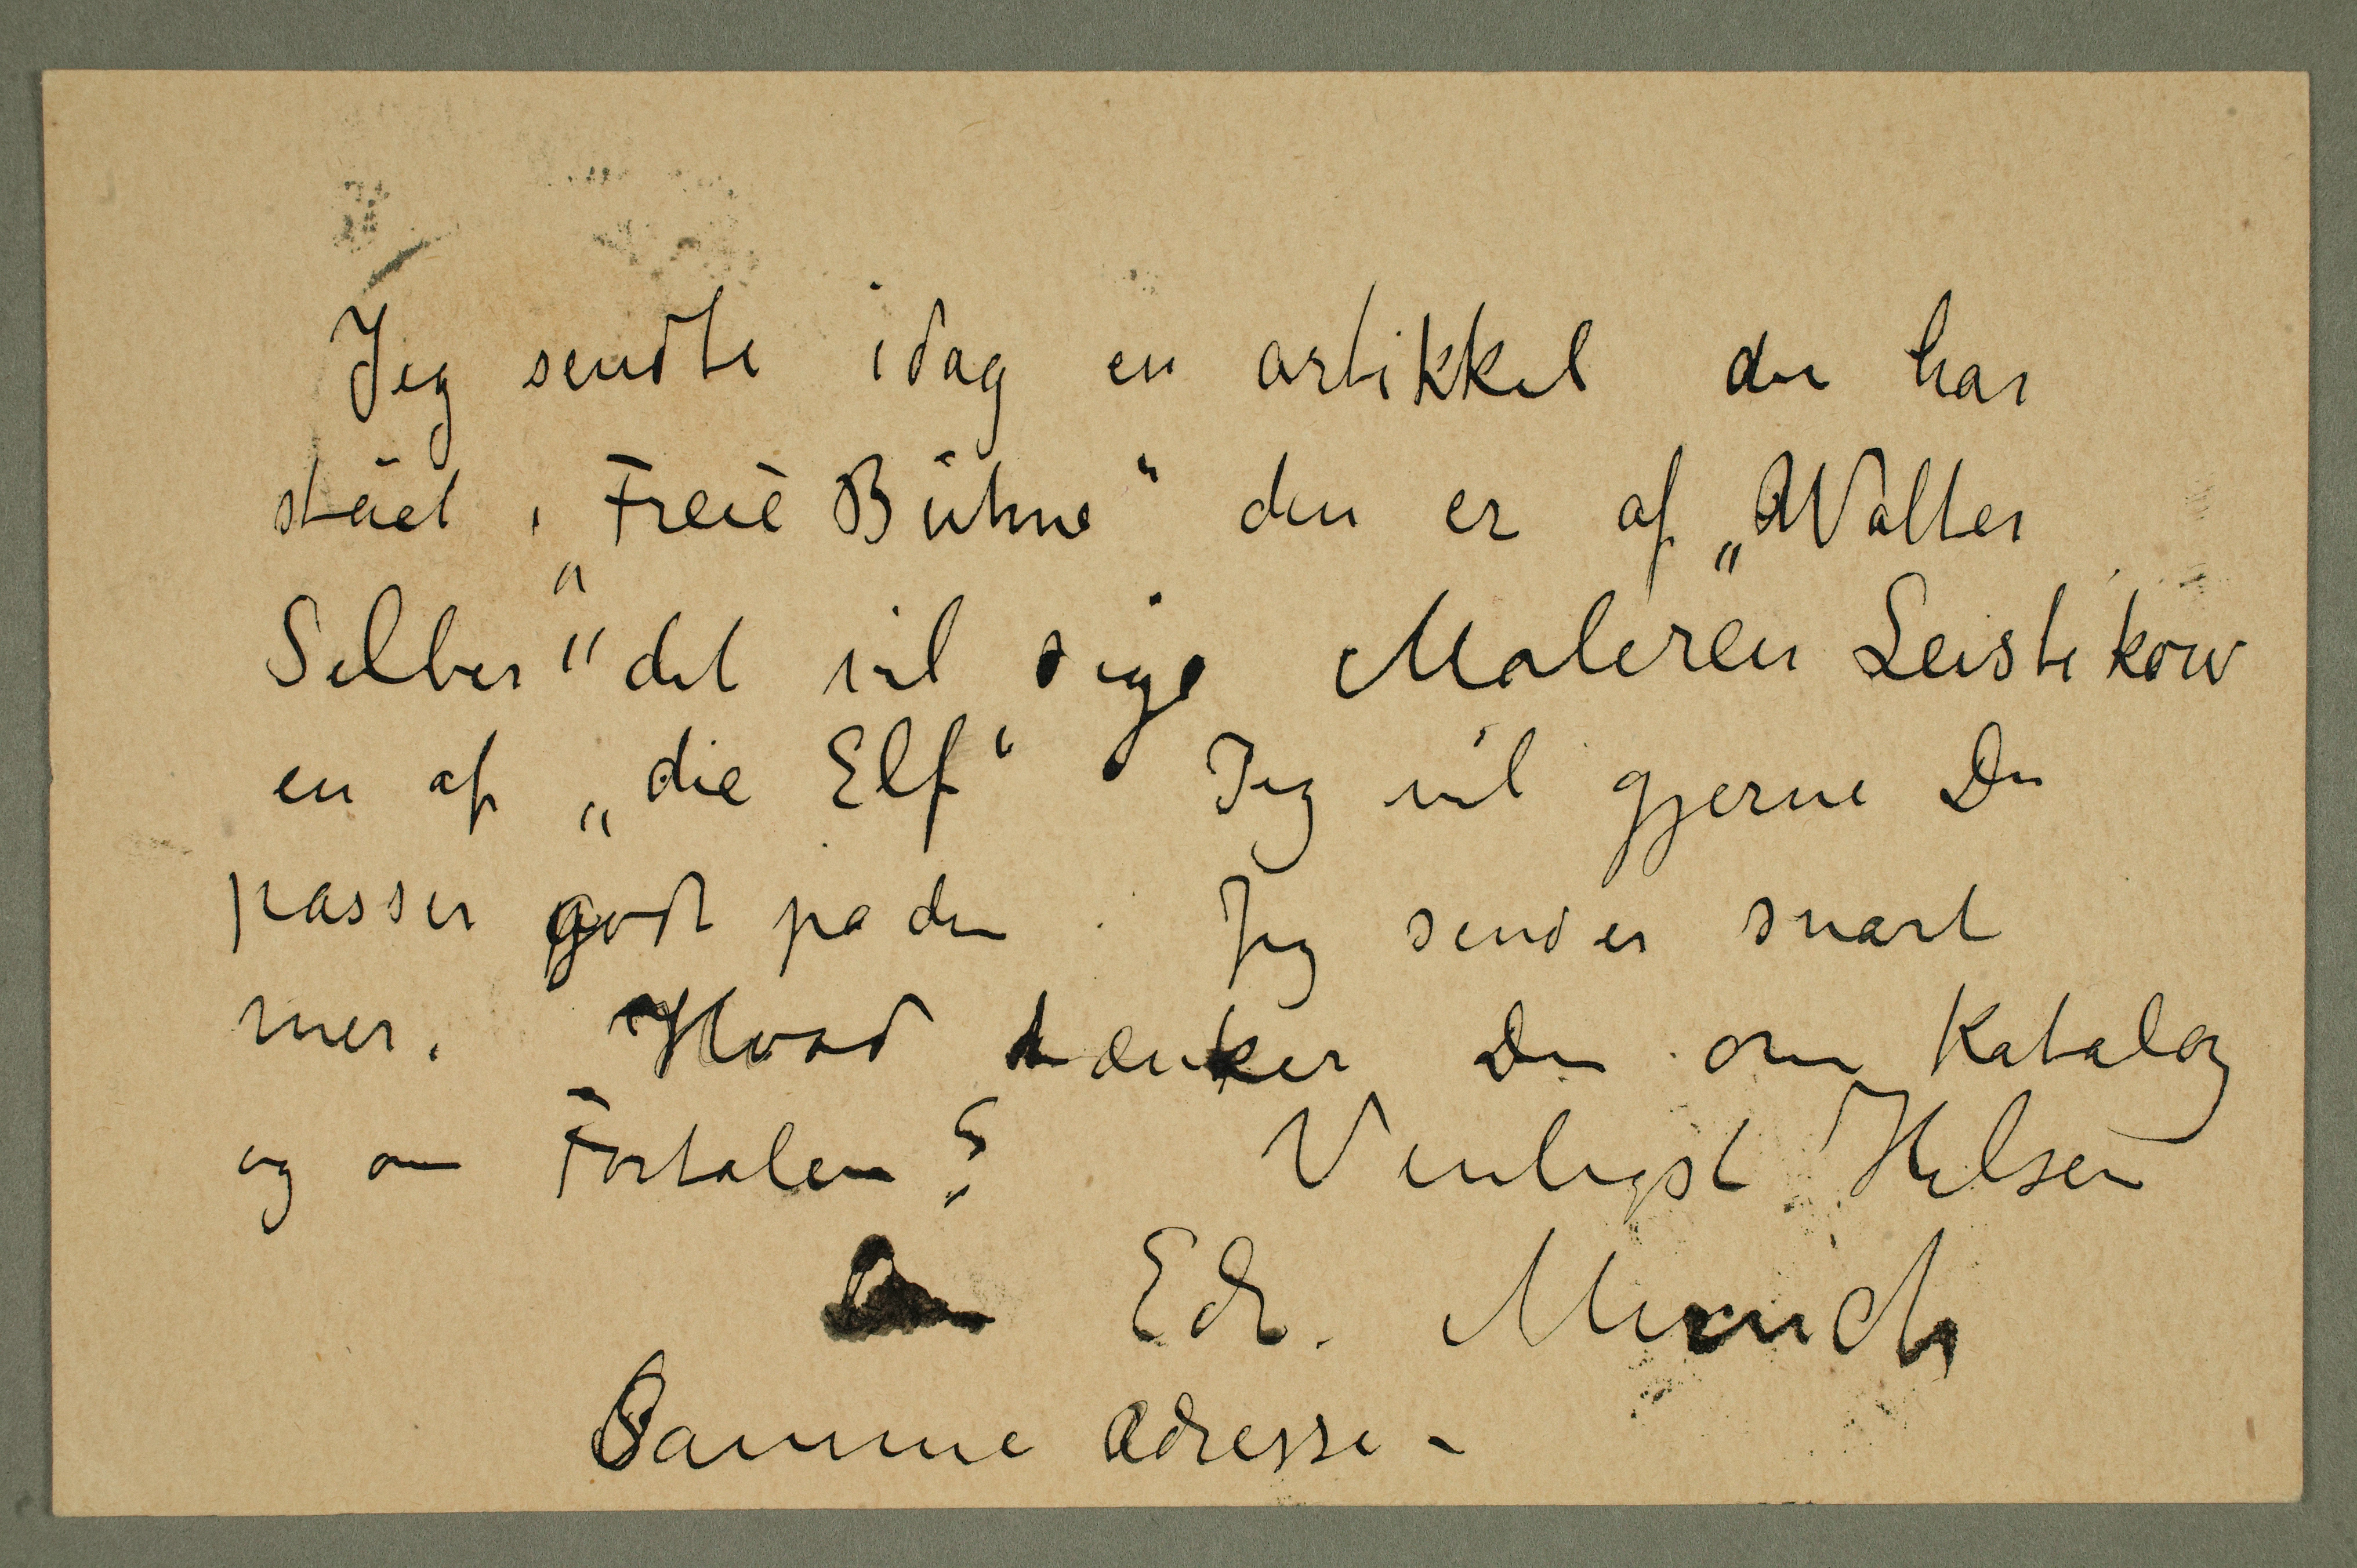 Jeg sendte idag en artikkel der har
stået i „Freie Bühne“ den er af „Walter
Selber“ det vil sige Maleren Leistikow
en af „die Elf“ Jeg vil gjerne Du
passer godt på den. Jeg sender snart
mer. Hvad tænker Du om Katalog
og om Fortalen? Venligst Hilsen
Edv. Munch
Samme Adresse –